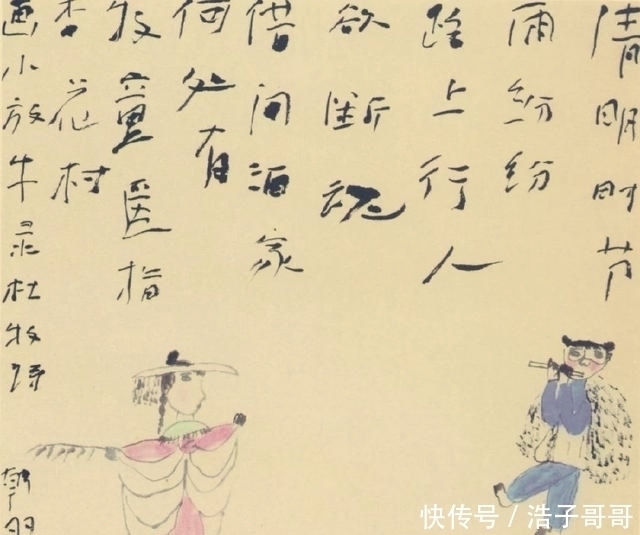 清明时节
雨纷纷
路上行人
欲断魂
借问酒家
何处有
牧童遥指
杏花村
画小放牛录杜牧诗
韩羽
快传号 / 浩子哥哥